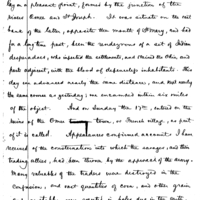 lay in a pleasant grove, formed by the junction of the
rivers Coree and St Joseph. It was situate on the east
bank of the latter, opposite the mouth of St Mary, and had
for a long time past, been the rendezvous of a set of Indian
desperadoes, who infested the settlements, and stained the Ohio, and
parts adjacent, with the blood of defenceless inhabitants. This
day we advanced nearly the same distance, and kept nearly
the same course as yesterday; we encamped within six miles
of the object. And on Sunday the 17th, entered on the
ruins of the Omee town, or French village, as part
of it is called. Appearances confirmed accounts I had
received of the consternation into which the savages, and their
trading allies, had been thrown by the approach of the army.
Many valuables of the traders were destroyed in the
confusion, and vast quantities of corn, and other grain